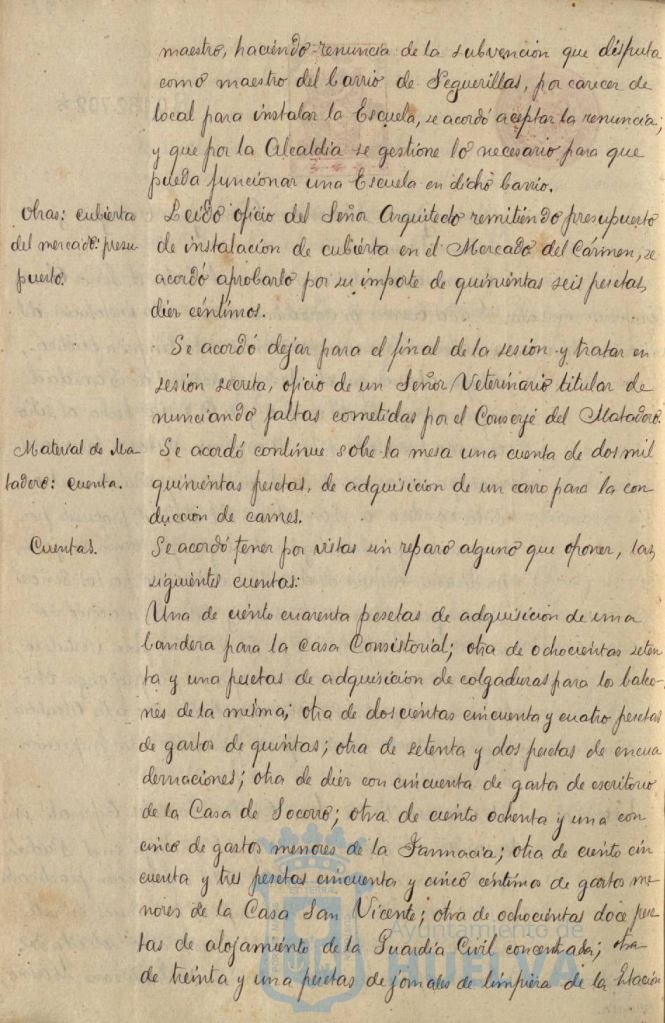 maestro, haciendo renuncia de la subvención que disfruta
como maestro del barrio de Peguerillas, por carecer de
local para instalar la Escuela, se acordó aceptar la renuncia;
y que por la Alcaldía se gestione lo necesario para que
pueda funcionar una Escuela en dicho barrio.
Obras: cubierta
del mercado: presu-
puesto.
Leido oficio del Señor Arquitecto remitiendo presupuesto
de instalación de cubierta en el Mercado del Cármen, se
acordó aprobarlo por su importe de quinientas seis pesetas,
diez céntimos.
Se acordó dejar para el final de la sesión y tratar en
sesión secreta, oficio de un Señor Veterinario titular de
nunciando faltas cometidas por el Conserje del Matadero.
Material de Ma-
tadero: cuenta.
Se acordó continúe sobre la mesa una cuenta de dos mil
quinientas pesetas, de adquisición de un carro para la con-
ducción de carnes.
Cuentas.
Se acordó tener por vistas sin reparo alguno que oponer, las
siguientes cuentas:
Una de ciento cuarenta pesetas de adquisición de una
bandera para la Casa Consistorial; otra de ochocientas seten-
ta y una pesetas de adquisición de colgaduras para los balco-
nes de la misma; otra de doscientas cincuenta y cuatro pesetas
de gastos de quintas; otra de setenta y dos pesetas de encua
dernaciones; otra de diez con cincuenta de gastos de escritorio
de la Casa de Socorro; otra de ciento ochenta y una con
cinco de gastos menores de la Farmacia; otra de ciento cin
cuenta y tres pesetas cincuenta y cinco céntimos de gastos me-
nores de la Casa San Vicente; otra de ochocientas doce pese
tas de alojamiento de la Guardia Civil concentrada; otra
de treinta y una pesetas de jornales de limpieza de la Estación
Ayuntamiento de
HUELVA